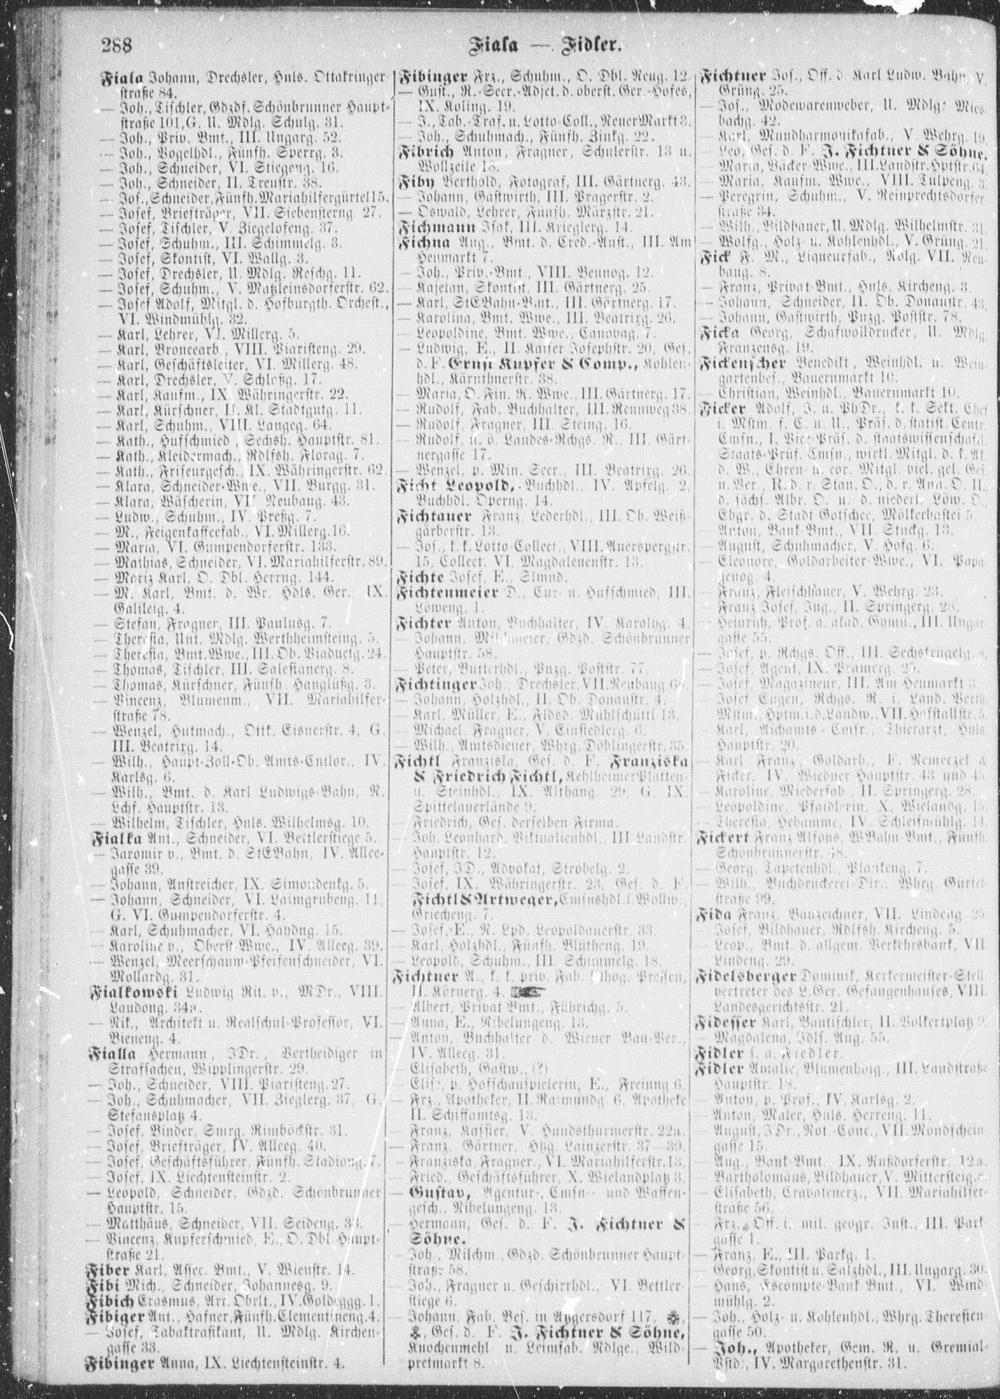 288
Fiala — Fidler.
Fiala Johann, Drechsler, Hnls. Ottakringer-
straße 84.
— Joh., Tischler, Gdzdf. Schönbrunner Haupt-
straße 101, G. U. Mdlg. Schulg. 31.
— Joh., Priv. Bmt., III. Ungarg. 52.
— Joh., Vogelhdl., Fünfh. Sperrg. 3.
— Joh., Schneider, VI. Stiegeng. 16.
— Joh., Schneider, II. Treustr. 38.
— Jos., Schneider, Fünfh. Mariahilfergürtel 15.
— Josef, Briefträger, VII. Siebensterng. 27.
— Josef, Tischler, V. Ziegelofeng. 37.
— Josef, Schuhm., III. Schimmelg. 3.
— Josef, Skontist, VI. Wallg. 3.
— Josef, Drechsler, U. Mdlg. Reschg. 11.
— Josef, Schuhm., V. Matzleinsdorferstr. 62.
— Josef Adolf, Mitgl. d. Hofburgth. Orchest.,
VI. Windmühlg. 32.
— Karl, Lehrer, VI. Millerg. 5.
— Karl, Broncearb., VIII. Piaristeng. 29.
— Karl, Geschäftsleiter, VI. Millerg. 48.
— Karl, Drechsler, V. Schloßg. 17.
— Karl, Kaufm., IX. Währingerstr. 22.
— Karl, Kürschner, U. Kl. Stadtgutg. 11.
— Karl, Schuhm., VIII. Langeg. 64.
— Kath., Hufschmied, Sechsh. Hauptstr. 81.
— Kath., Kleidermach., Rdlfsh. Florag. 7.
— Kath., Friseurgesch., IX. Währingerstr. 62.
— Klara, Schneider-Wwe., VII. Burgg. 31.
— Klara, Wäscherin, VII. Neubaug. 43.
— Ludw., Schuhm., IV. Preßg. 7.
— M., Feigenkaffeefab., VI. Millerg. 16.
— Maria, VI. Gumpendorferstr. 133.
— Mathias, Schneider, VI. Mariahilferstr. 89.
— Moriz Karl, O. Dbl. Herrng. 144.
— M. Karl, Bmt. d. Wr. Hdls. Ger., IX.
Galileig. 4.
— Stefan, Fragner, III. Paulusg. 7.
— Theresia, Unt. Mdlg. Werthheimsteing. 5.
— Theresia, Bmt. Wwe., III. Ob. Viaductg. 24.
— Thomas, Tischler, III. Salesianerg. 8.
— Thomas, Kürschner, Fünfh. Hanglüßg. 3.
— Vincenz, Blumenm., VII. Mariahilfer-
straße 78.
— Wenzel, Hutmach., Ottk. Eisnerstr. 4, G.
III. Beatrixg. 14.
— Wilh., Haupt-Zoll-Ob. Amts-Cntlor., IV.
Karlsg. 6.
— Wilh., Bmt. d. Karl Ludwigs-Bahn, N.
Lchf. Hauptstr. 13.
— Wilhelm, Tischler, Hnls. Wilhelmsg. 10.
Fialka Ant., Schneider, VI. Bettlerstiege 5.
— Jaromir v., Bmt. d. StEBahn, IV. Allee-
gasse 39.
— Johann, Anstreicher, IX. Simondenkg. 5.
— Johann, Schneider, VI. Laimgrubeng. 11,
G. VI. Gumpendorferstr. 4.
— Karl, Schuhmacher, VI. Haydng. 15.
— Karoline v., Oberst Wwe., IV. Alleeg. 39.
— Wenzel, Meerschaum-Pfeifenschneider, VI.
Mollardg. 31.
Fialkowski Ludwig Rit. v., MDr., VIII.
Laudong. 34a.
— Nik., Architekt u. Realschul-Professor, VI.
Bieneng. 4.
Fialla Hermann, JDr., Vertheidiger in
Strafsachen, Wipplingerstr. 29.
— Joh., Schneider, VIII. Piaristeng. 27.
— Joh., Schuhmacher, VII. Zieglerg. 37, G.
Stefansplatz 4.
— Josef, Binder, Smrg. Rimböckstr. 31.
— Josef, Briefträger, IV. Alleeg. 40.
— Josef, Geschäftsführer, Fünfh. Stadiong. 7.
— Josef, IX. Liechtensteinstr. 2.
— Leopold, Schneider, Gdzd. Schönbrunner
Hauptstr. 15.
— Matthäus, Schneider, VII. Seideng. 33.
— Vincenz, Kupferschmied, E., O. Dbl. Haupt-
straße 21.
Fiber Karl, Assec. Bmt., V. Wienstr. 14.
Fibi Mich., Schneider, Johannesg. 9.
Fibich Erasmus, Art. Obrlt., IV. Goldeggg. 1.
Fibiger Ant., Hafner, Fünfh. Clementineng. 4.
— Josef, Tabaktrafikant, U. Mdlg. Kirchen-
gasse 33.
Fibinger Anna, IX. Liechtensteinstr. 4.
Fibinger Frz., Schuhm., O. Dbl. Neug. 12.
— Gust., R.-Secr.-Adjct. d. oberst. Ger.-Hofes,
IX. Koling. 19.
— J., Tab.-Traf. u. Lotto-Coll., Neuer Markt 3.
— Joh., Schuhmach., Fünfh. Zinkg. 22.
Fibrich Anton, Fragner, Schulerstr. 13 u.
Wollzeile 15.
Fiby Berthold, Fotograf, III. Gärtnerg. 43.
— Johann, Gastwirth, III. Pragerstr. 2.
— Oswald, Lehrer, Fünfh. Märzstr. 21.
Fichmann Isak, III. Krieglerg. 14.
Fichna Aug., Bmt. d. Cred.-Anst., III. Am
Heumarkt 7.
— Joh., Priv.-Bmt., VIII. Bennog. 12.
— Kajetan, Skontist, III. Gärtnerg. 25.
— Karl, StEBahn-Bmt., III. Gärtnerg. 17.
— Karolina, Bmt. Wwe., III. Beatrixg. 26.
— Leopoldine, Bmt. Wwe., Canovag. 7.
— Ludwig, E., II. Kaiser Josephstr. 20, Ges.
d. F. Ernst Kupfer & Comp., Kohlen-
hdl., Kärnthnerstr. 38.
— Maria, O. Fin. R. Wwe., III. Gärtnerg. 17.
— Rudolf, Fab. Buchhalter, III. Rennweg 38.
— Rudolf, Fragner, III. Steing. 16.
— Rudolf, n. ö. Landes-Rchgs. R., III. Gärt-
nergasse 17.
— Wenzel, p. Min. Secr., III. Beatrixg. 26.
Ficht Leopold, Buchhdl., IV. Apfelg. 2,
Buchhdl. Operng. 14.
Fichtauer Franz, Lederhdl., III. Ob. Weiß-
gärberstr. 13.
— Jos., k. k. Lotto-Collect., VIII. Auerspergstr.
15, Collect. VI. Magdalenenstr. 13.
Fichte Josef, E., Slmnd.
Fichtenmeier D., Cur- u. Hufschmied, III.
Löweng. 1.
Fichter Anton, Buchhalter, IV. Karolyg. 4.
— Johann, Milchmeier, Gdzd. Schönbrunner
Hauptstr. 58.
— Peter, Butterhdl., Pnzg. Poststr. 77.
Fichtinger Joh., Drechsler, VII. Neubaug.
— Johann, Holzhdl., II. Ob. Donaustr. 4.
— Karl, Müller, E., Fldsd. Mühlschüttl 13.
— Michael, Fragner, V. Einsiedlerg. 6.
— Wilh., Amtsdiener, Whrg. Döblingerstr. 35.
Fichtl Franziska, Ges. d. F. Franziska
& Friedrich Fichtl, Kehlheimer Platten-
u. Steinhdl., IX. Althang. 29, G. IX.
Spittelauerlände 9.
— Friedrich, Ges. derselben Firma.
— Joh. Leonhard, Viktualienhdl., III. Landstr.
Hauptstr. 12.
— Josef, JD., Advokat, Strobelg. 2.
— Josef, IX. Währingerstr. 23, Ges. d. F.
Fichtl & Artweger, Cmsnshdl. i. Wollw.,
Griecheng. 7.
— Josef, E., N. Lpd. Leopoldauerstr. 33.
— Karl, Holzhdl., Fünfh. Blütheng. 19.
— Leopold, Schuhm., III. Schimmelg. 18.
Fichtner A., k. k. priv. Fab. lithog. Pressen,
II. Körnerg. 4.
— Albert, Privat Bmt., Führichg. 5.
— Anna, E., Nibelungeng. 13.
— Anton, Buchhalter d. Wiener Bau-Ver.,
IV. Alleeg. 31.
— Elisabeth, Gastw., (?)
— Elise, p. Hofschauspielerin, E., Freiung 6.
— Frz., Apotheker, II. Raimundg. 6, Apotheke
II. Schiffamtsg. 13.
— Franz, Kassier, V. Hundsthurmerstr. 22a.
— Franz, Gärtner, Htzg. Lainzerstr. 37—39.
— Franziska, Fragner., VI. Mariahilferstr. 13.
— Fried., Geschäftsführer, X. Wielandplatz 3.
— Gustav, Agentur-, Cmsn- und Waffen-
gesch., Nibelungeng. 13.
— Hermann, Ges. d. F. J. Fichtner &
Söhne.
— Joh., Milchm., Gdzd. Schönbrunner Haupt-
straße 58.
— Joh., Fragner u. Geschirrhdl., VI. Bettler-
stiege 6.
— Johann, Fab. Bes. in Atzgersdorf 117,
Ges. d. F. J. Fichtner & Söhne,
Knochenmehl- u. Leimfab. Ndlge., Wild-
pretmarkt 8.
Fichtner Jos., Off. d. Karl Ludw. Bahn, V.
Grüng. 25.
— Jos., Modewarenweber, U. Mdlg. Mies-
bachg. 42.
— Karl, Mundharmonikafab., V. Wehrg. 19.
— Leo, Ges. d. F. J. Fichtner & Söhne.
— Maria, Bäcker-Wwe., III. Landstr. Hptstr. 64.
— Maria, Kaufm. Wwe., VIII. Tulpeng. 3.
— Peregrin, Schuhm., V. Reinprechtsdorfer-
straße 34.
— Wilh., Bildhauer, U. Mdlg. Wilhelmstr. 31.
— Wolfg., Holz- u. Kohlenhdl., V. Grüng. 21.
Fick F. M., Liqueurfab., Nolg. VII. Neu-
baug. 8.
— Franz, Privat-Bmt., Hnls. Kircheng. 3.
— Johann, Schneider, II. Ob. Donaustr. 43.
— Johann, Gastwirth, Pnzg. Poststr. 78.
Ficka Georg, Schafwolldrucker, U. Mdlg.
Franzensg. 19.
Fickenscher Benedikt, Weinhdl. u. Wein-
gartenbes., Bauernmarkt 10.
— Christian, Weinhdl., Bauernmarkt 10.
Ficker Adolf, J. u. PhDr., k. k. Sekt. Chef
i. Mstm. f. C. u. U., Präs. d. statist. Centr.
Cmsn., I. Vice-Präs. d. staatswissenschaftl.
Staats-Prüf. Cmsn., wirkl. Mitgl. d. k. Ak.
d. W., Ehren- u. cor. Mitgl. viel. gel. Ges.
u. Ver., R. d. r. Stan. O., d. r. Ana. O. II.,
d. sächs. Albr. O. u. d. niederl. Löw. O.,
Ehgr. d. Stadt Gotschee, Mölkerbastei 5.
— Anton, Bank-Bmt., VII. Stuckg. 13.
— August, Schuhmacher, V. Hofg. 6.
— Eleonore, Goldarbeiter-Wwe., VI. Papa-
genog. 4.
— Franz, Fleischhauer, V. Wehrg. 23.
— Franz Josef, Ing., II. Springerg. 28.
— Heinrich, Prof. a. akad. Gymn., III. Ungar-
gasse 55.
— Josef, p. Rchgs. Off., III. Sechskrügelg. 8.
— Josef, Agent, IX. Pramerg. 25.
— Josef, Magazineur, III. Am Heumarkt 3.
— Josef Eugen, Rchgs. R. i. Land. Verth.
Mstm., Hptm. i. d. Landw., VII. Hofstallstr. 5.
— Karl, Aichamts-Cmsr., Thierarzt, Hnls.
Hauptstr. 20.
— Karl Franz, Goldarb., F. Nemeczek &
Ficker, IV. Wiedner Hauptstr. 43 und 45.
— Karoline, Miederfab., II. Springerg. 28.
— Leopoldine, Pfaidlerin, X. Wielandg. 15.
— Theresia, Hebamme, IV. Schleifmühlg. 14.
Fickert Franz Alfons, WBahn-Bmt., Fünfh.
Schönbrunnerstr. 48.
— Georg, Tapetenhdl., Plankeng. 7.
— Wilh., Buchdruckerei-Dir., Whrg. Gürtel-
straße 99.
Fida Franz, Bauzeichner, VII. Lindeng. 25.
— Josef, Bildhauer, Rdlfsh. Kircheng. 5.
— Leop., Bmt. d. allgem. Verkehrsbank, VII.
Lindeng. 29.
Fidelsberger Dominik, Kerkermeister-Stell-
vertreter des L. Ger. Gefangenhauses, VIII.
Landesgerichtsstr. 21.
Fidesser Karl, Bautischler, II. Volkertplatz 9.
— Magdalena, Jdls. Aug. 55.
Fidler s. a. Fiedler.
Fidler Amalie, Blumenhdlg., III. Landstraße
Hauptstr. 18.
— Anton, p. Prof., IV. Karlsg. 2.
— Anton, Maler, Hnls. Herreng. 11.
— August, JDr., Not.-Conc., VII. Mondschein-
gasse 15.
— Aug., Bank-Bmt., IX. Nußdorferstr. 12a.
— Bartholomäus, Bildhauer, V. Mittersteig
— Elisabeth, Cravatenerz., VII. Mariahilfer-
straße 56.
— Frz., Off. i. mil. geogr. Inst., III. Park-
gasse 1.
— Franz, E., III. Parkg. 1.
— Georg, Skontist u. Salzhdl., III. Ungarg. 30.
— Hans, Escompte-Bank-Bmt., VI. Wind-
mühlg. 2.
— Joh., Holz- u. Kohlenhdl., Whrg. Theresien-
gasse 50.
— Joh., Apotheker, Gem. R. u. Gremial-
Vstd., IV. Margarethenstr. 31.